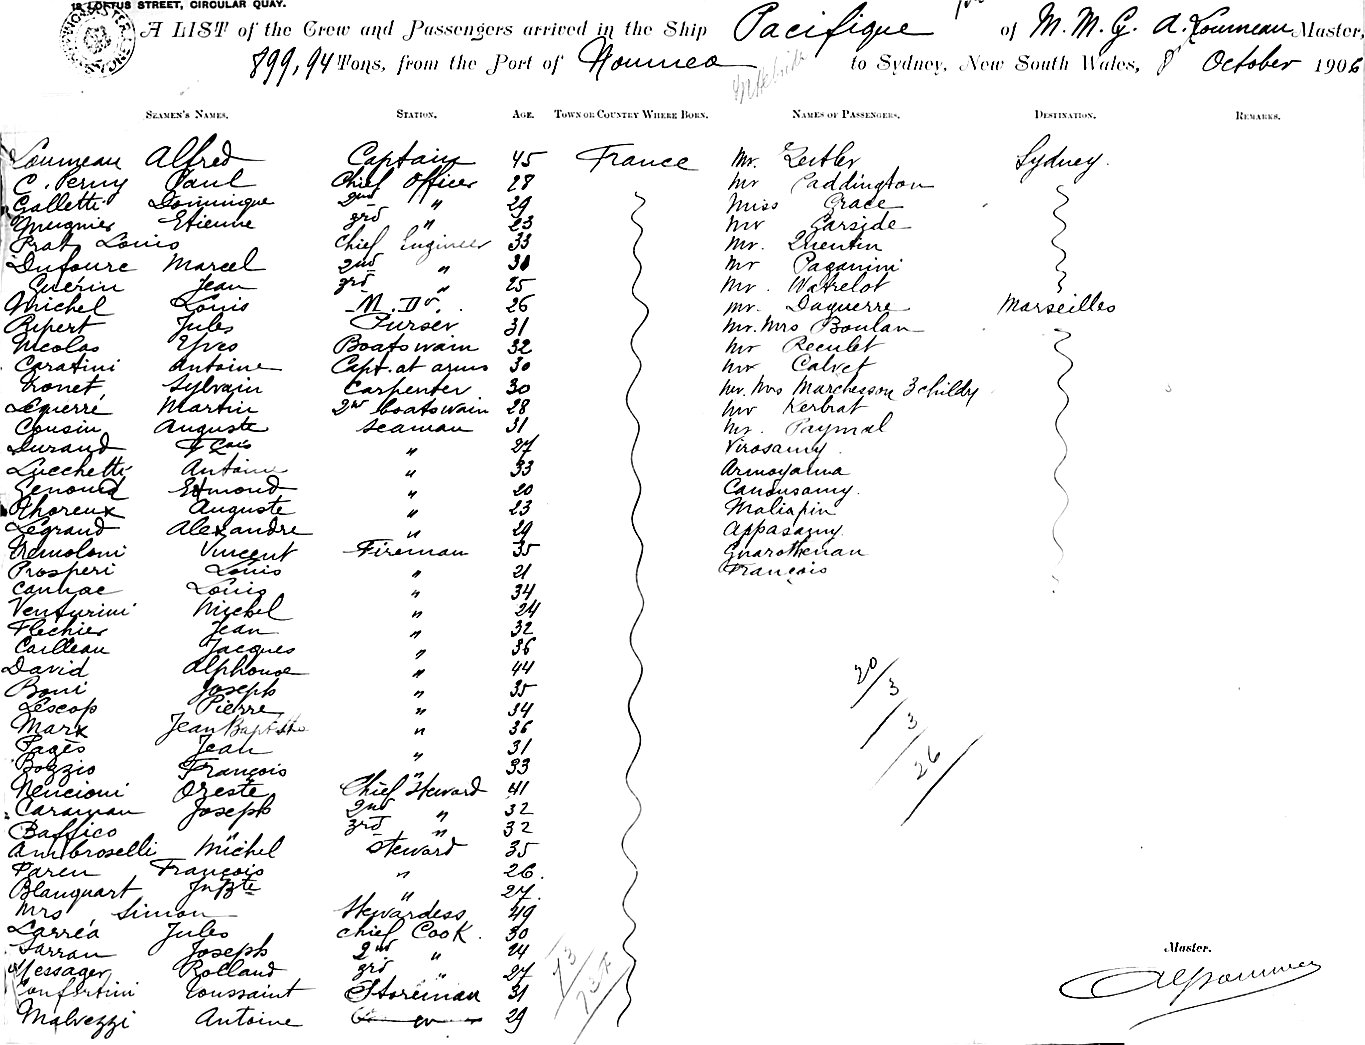 18 LOFTUS STREET, CIRCULAR QUAY.
A LIST of the Crew and Passengers arrived in the Ship Pacifique of M. M. G. A. Loumeau Master,
899,94 Tons, from the Port of Noumea to Sydney, New South Wales, 8 October 1906
SEAMEN'S NAMES. STATION. AGE. TOWN OR COUNTRY WHERE BORN. NAMES OF PASSENGERS. DESTINATION. REMARKS.
Loumeau Alfred Captain 45 France Mr. Zeitler Sydney.
C. Perny Paul Chief Officer 28 Mr Paddington
Galletti Dominique 2nd " 29 Miss Grace
Mugnier Etienne 3rd " 23 Mr Garside
Prat Louis Chief Engineer 33 Mr. Quentin
Dufoure Marcel 2nd " 30 Mr Paganini
Guérin Jean 3rd " 25 Mr. Watrelot
Michel Louis M. Dr. 26 Mr. Daguerre Marseilles
Ripert Jules Purser 31 Mr. Mrs Boulan
Nicolas Yves Boatswain 32 Mr Reculet
Caratini Antoine Capt. at arms 30 Mr Calvet
Zonet Sylvain Carpenter 30 Mr. Mrs Marchesson 3 childr
Leguerré Martin 2nd boatswain 28 Mr Kerbrat
Cousin Auguste Seaman 31 Mr. Paymal
Durand Fçois " 27 Virosamy
Lucchetti Antoine " 33 Armoyalma
Genoud Edmond " 20 Canousamy.
Thoreux Auguste " 23 Maliapin
Legrand Alexandre " 29 Appasamy
Tremoloni Vincent Fireman 35 Gnarothenan
Prosperi Louis " 21 François
Cannac Louis " 34
Venturini Michel " 24
Flechier Jean " 32
Cailleau Jacques " 36
David Alphonse " 44
Boni Joseph " 35
Lescop Pierre " 34
Marx Jean Baptiste " 36
Pagès Jean " 31
Bozzio François " 33
Nencioni Oreste Chief Steward 41
Caraman Joseph 2nd " 32
Baffico " 3rd " 32
Ambroselli Michel Steward 35
Paren François " 26.
Blanquart Jn Bte " 27.
Mrs Simon Stewardess 49
Larréa Jules Chief Cook. 30
Sarran Joseph 2nd " 24
Messager Rolland 3rd " 27
Confortini Toussaint Storeman 31
Malvezzi Antoine 29
20/3/3/26
Master.